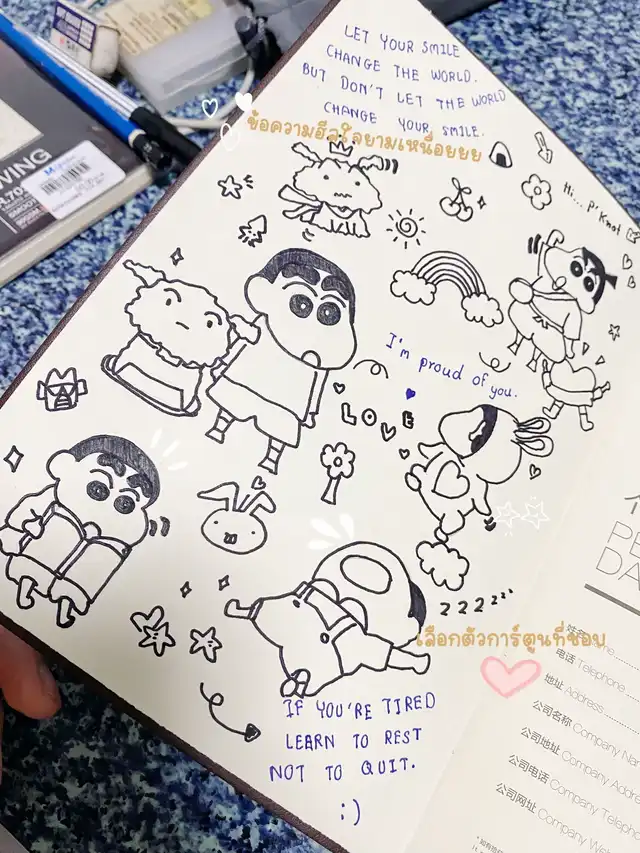 LET YOUR SMILE
CHANGE THE WORLD.
BUT DON'T LET THE WORLD
CHANGE YOUR SMILE.
ข้อความฮีลใจยามเหนื่อยยย
Hi... P'Knot
I'm proud of you.
LOVE
zzzzzz
เลือกตัวการ์ตูนที่ชอบ
IF YOU'RE TIRED
LEARN TO REST
NOT TO QUIT.
:)
姓名
电话 Telephone
地址 Address
公司名称 Company Na
公司地址 Company Addre
公司电话 Company Teleph
公司网址 Company Web
WING